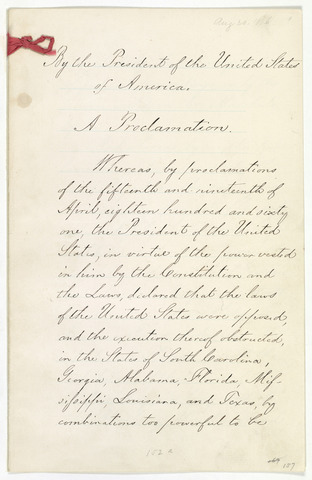 By the President of the United States
of America.
A Proclamation.
Whereas, by proclamations
of the fifteenth and nineteenth of
April, eighteen hundred and sixty
one, the President of the United
States, in virtue of the power vested
in him by the Constitution and
the Laws, declared that the laws
of the United States were opposed,
and the execution thereof obstructed,
in the States of South Carolina,
Georgia, Alabama, Florida, Mis-
sissippi, Louisiana, and Texas, by
combinations too powerful to be
107